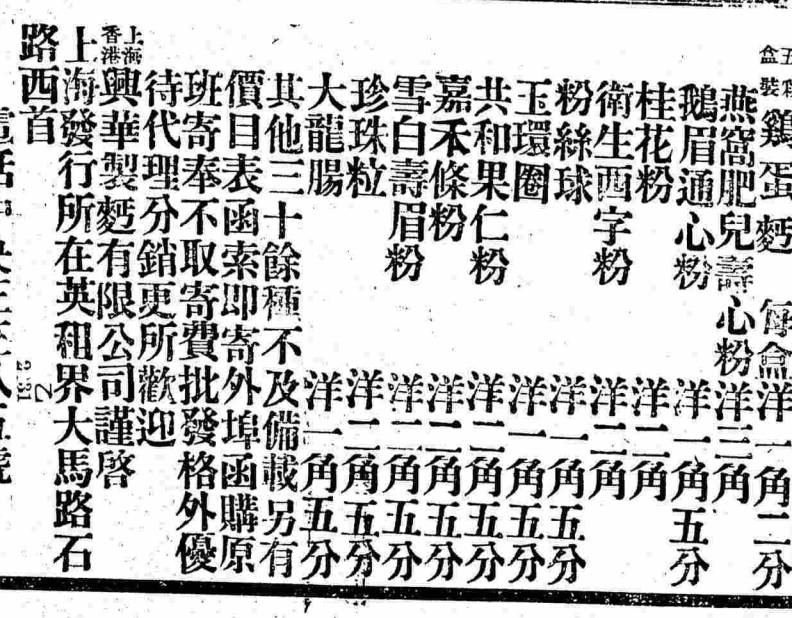 盒裝雞蛋麪 每盒洋一角二分
燕窩肥兒壽心粉 洋三角
鵝眉通心粉 洋一角五分
桂花粉 洋二角
衛生酉字粉 洋二角
粉絲球 洋一角五分
玉環圈 洋一角五分
共和果仁粉 洋二角五分
嘉禾條粉 洋二角五分
雪白壽眉粉 洋二角五分
珍珠粒 洋二角五分
大龍腸 洋一角五分
其他三十餘種不及備載另有
價目表函索即寄外埠函購原
班寄奉不取寄費批發格外優
待代理分銷更所歡迎
上海香港興華製麪有限公司謹啓
上海發行所在英租界大馬路石
路西首
電話